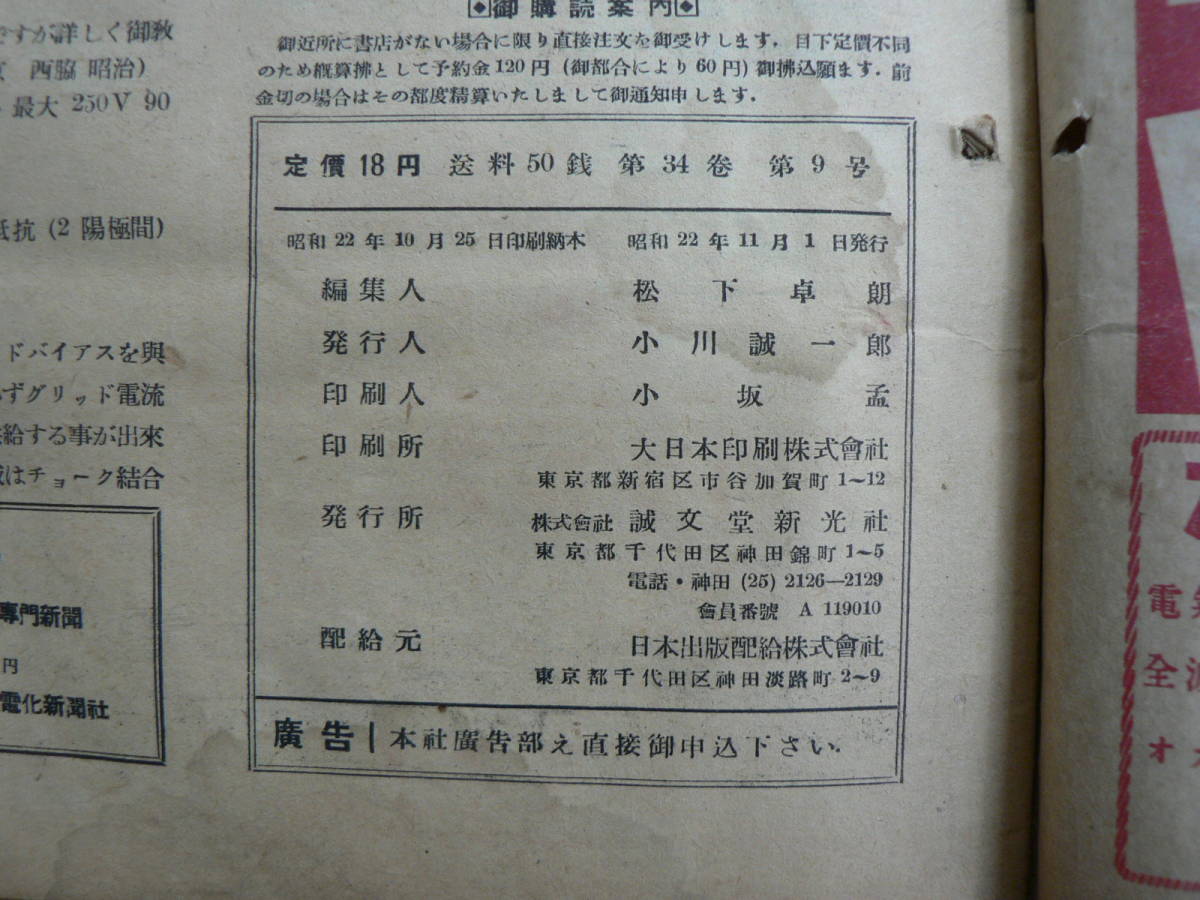 御購読案内
御近所に書店がない場合に限り直接注文を御受けします．目下定價不同
のため概算拂として予約金120円（御都合により60円）御拂込願ます．前
金切の場合はその都度精算いたしまして御通知申します．
定價18円 送料50銭 第34巻 第9号
昭和22年10月25日印刷納本 昭和22年11月1日発行
編集人 松下卓朗
発行人 小川誠一郎
印刷人 小坂孟
印刷所 大日本印刷株式會社
東京都新宿区市谷加賀町1～12
発行所 株式會社 誠文堂新光社
東京都千代田区神田錦町1～5
電話・神田 (25) 2126—2129
會員番號 A 119010
配給元 日本出版配給株式會社
東京都千代田区神田淡路町2～9
廣告 本社廣告部え直接御申込下さい．
ですが詳しく御教
西脇 昭治）
最大 250V 90
抵抗（2 陽極間）
ドバイアスを與
ずグリッド電流
給する事が出來
はチョーク結合
専門新聞
円
電化新聞社
電
全
オ